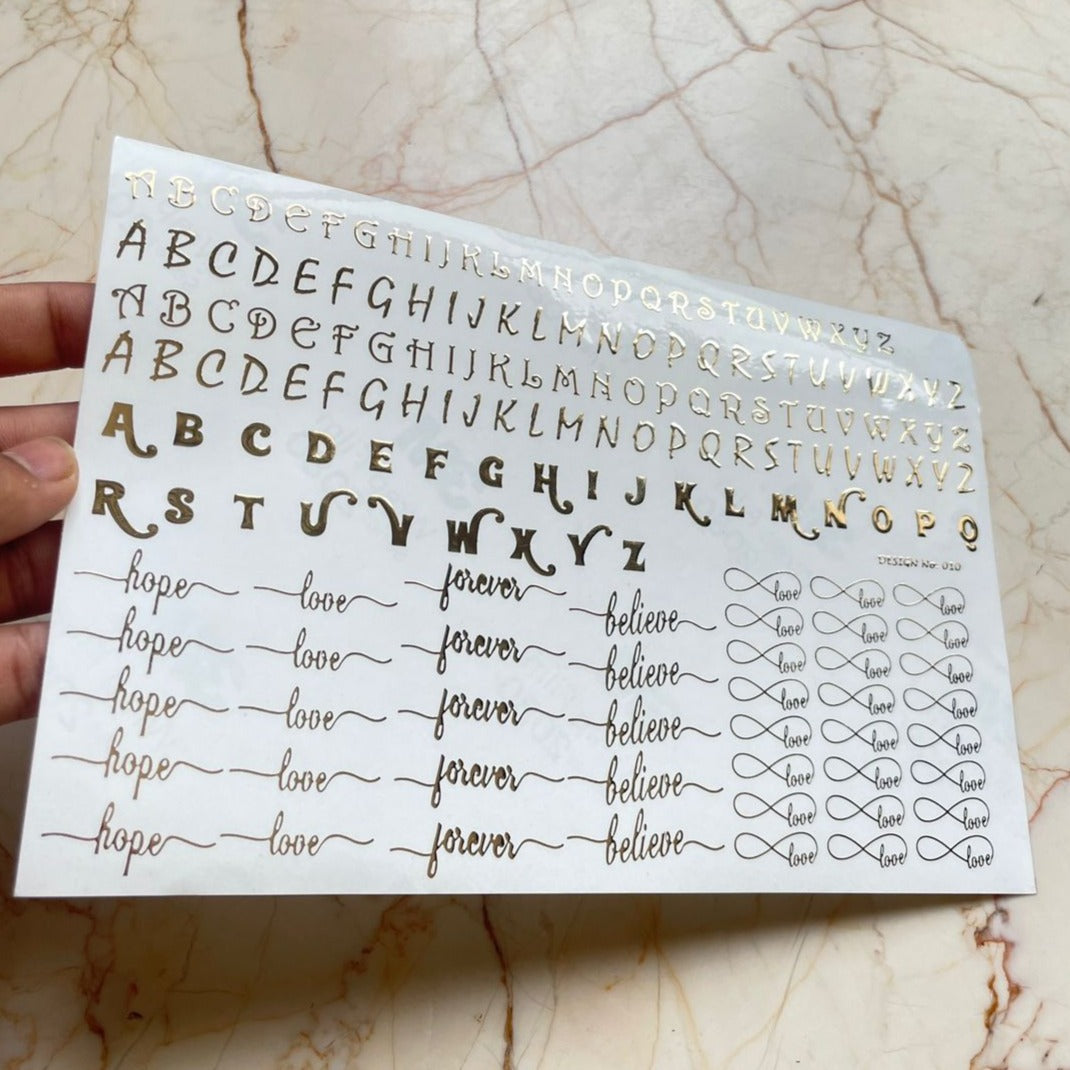 ABCDEFGHIJKLMNOPQRSTUVWXYZ
ABCDEFGHIJKLMNOPQRSTUVWXYZ
ABCDEFGHIJKLMNOPQRSTUVWXYZ
ABCDEFGHIJKLMNOPQRSTUVWXYZ
A B C D E F G H I J K L M N O P Q
R S T U V W X Y Z
DESIGN No: 010
hope love forever believe
hope love forever believe
hope love forever believe
hope love forever believe
hope love forever believe
love love love
love love love
love love love
love love love
love love love
love love love
love love love
love love love